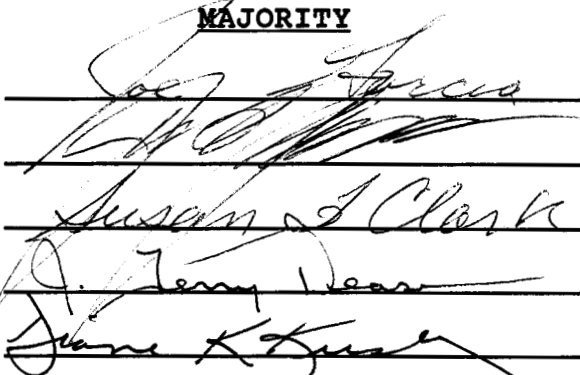 MAJORITY
Joe Garcia
Susan F Clark
J. Terry Deason
Diane K Kiesling